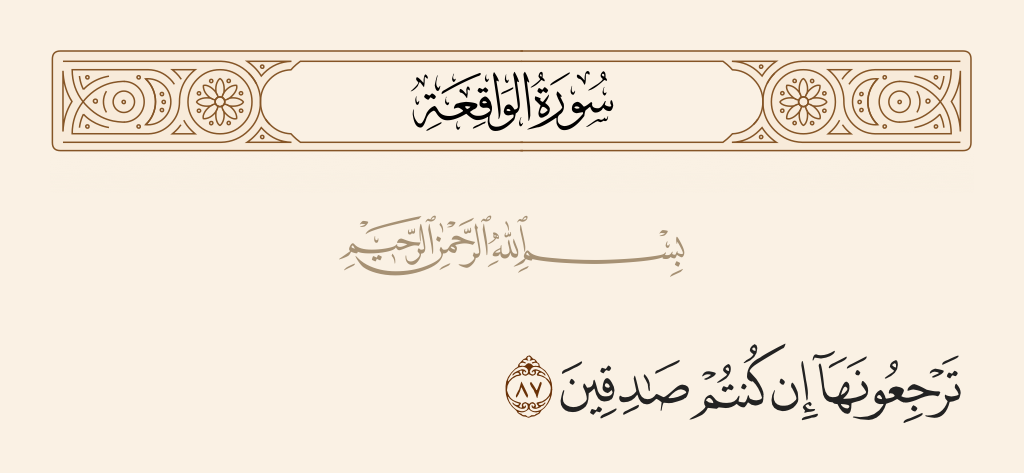 سُورَةُ الوَاقِعَةِ
بِسْمِ ٱللَّهِ ٱلرَّحْمَٰنِ ٱلرَّحِيمِ
تَرْجِعُونَهَآ إِن كُنتُمْ صَٰدِقِينَ ٨٧